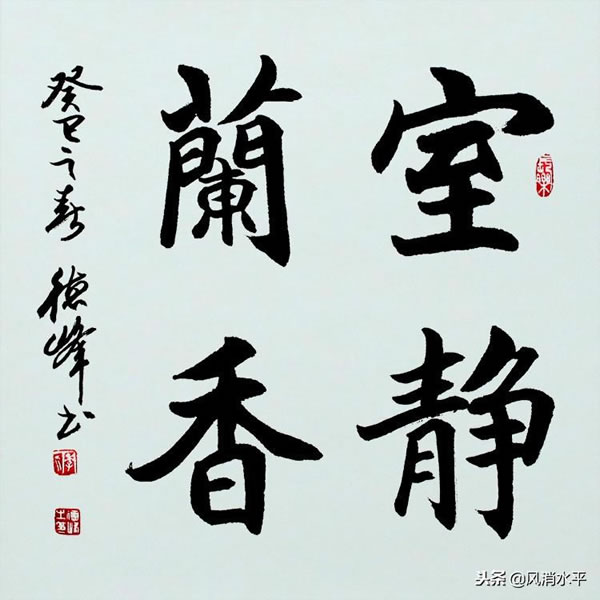 室静
蘭香
癸巳之春 德峰书
头条 @风消水平